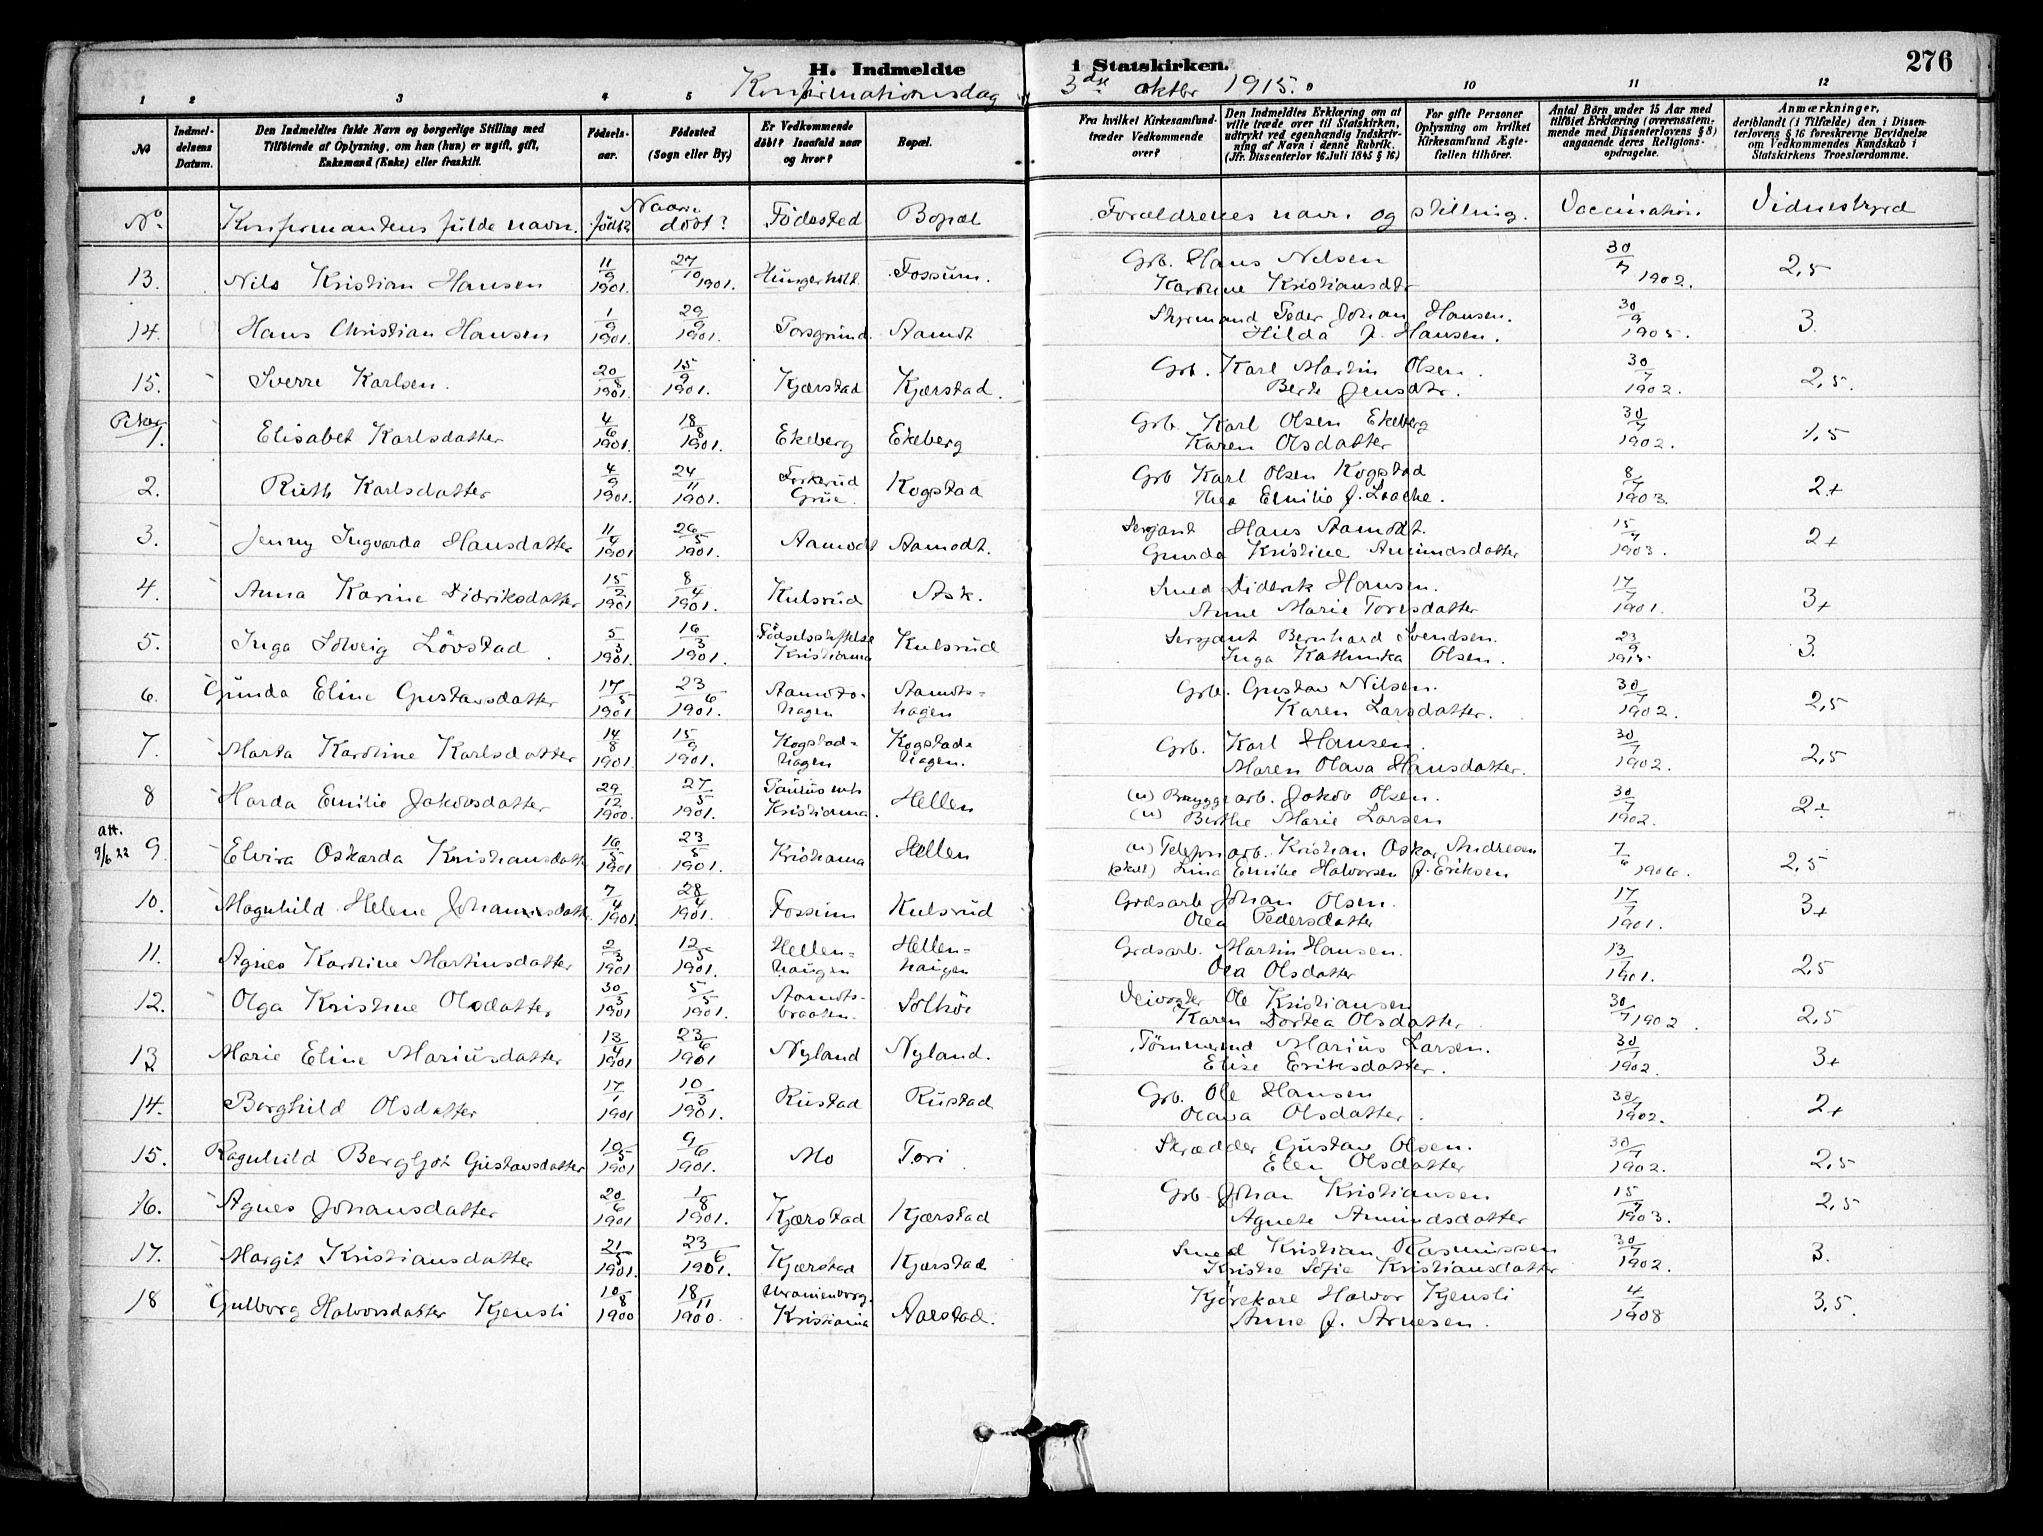 276
H. Indmeldte i Statskirken.
Konfirmationsdag 3die oktbr 1915.
1 2 3 4 5 10 11 12
No
Indmel-
delsens
Datum.
Den Indmeldtes fulde Navn og borgerlige Stilling med
Tilføiende af Oplysning, om han (hun) er ugift, gift,
Enkemand (Enke) eller fraskilt.
Fødsels-
aar.
Fødested
(Sogn eller By.)
Er Vedkommende
døbt? Isaafald naar
og hvor?
Bopæl.
Fra hvilket Kirkesamfund-
træder Vedkommende
over?
Den Indmeldtes Erklæring om at
ville træde over til Statskirken,
udtrykt ved egenhændig Indskriv-
ning af Navn i denne Rubrik.
(Jfr. Dissenterlov 16 Juli 1845 § 16)
For gifte Personer
Oplysning om hvilket
Kirkesamfund Ægte-
fællen tilhører.
Antal Børn under 15 Aar med
tilføiet Erklæring (overensstem-
mende med Dissenterlovens § 8)
angaaende deres Religions-
opdragelse.
Anmærkninger,
deriblandt (i Tilfælde) den i Dissen-
terlovens § 16 foreskrevne Bevidnelse
om Vedkommendes Kundskab i
Statskirkens Troeslærdomme.
No. Konfirmantens fulde navn. Naar født? døbt? Fødested Bopæl Forældrenes navn og stilling. Vaccination Vidnesbyrd
13. Nils Kristian Hansen 11/9 1901. 27/10 1901. Hungerholt Fossum. Grb. Hans Nilsen 30/7 1902. 2,5
Karoline Kristiansdtr
14. Hans Christian Hansen 1/9 1901. 29/9 1901. Porsgrund Aamodt Styrmand Peder Johan Hansen. 30/9 1905. 3.
Hilda J. Hansen.
15. Sverre Karlsen. 20/8 1901. 15/9 1901. Kjærstad Kjærstad. Grb. Karl Martin Olsen. 30/7 1902. 2,5.
Berte Jensdtr.
Piker
1. Elisabet Karlsdatter 4/6 1901. 18/8 1901. Ekeberg Ekeberg Grb. Karl Olsen Ekeberg 30/7 1902. 1,5
Karen Olsdatter
2. Ruth Karlsdatter 4/9 1901. 24/11 1901. Grue. Kogstad Grb Karl Olsen Kogstad 8/7 1903. 2+
Thea Emilie J.
3. Jenny Ingvarda Hansdatter 11/4 1901 26/5 1901. Aamodt Aamodt. Sersjant Hans Aamodt. 15/7 1903. 2+
Gunda Kristine Amundsdatter
4. Anna Karine Didriksdatter 15/2 1901 8/4 1901. Kulsrud Ask. Smed Diderik Hansen. 17/7 1901. 3+
Anne Marie Toresdatter
5. Inga Solveig Løvstad 5/3 1901. 16/3 1901. Fødselsstiftelse Kristiania Kulsrud Sersjant Bernhard Svendsen. 23/9 1915. 3.
Inga Kathinka Olsen.
6. Gunda Eline Gustavsdatter 17/5 1901 23/6 1901. Aamodts-hagen Aamodts=hagen Grb. Gustav Nilsen. 30/7 1902. 2,5
Karen Larsdatter.
7. Marta Karoline Karlsdatter 14/8 1901. 15/9 1901. Kogstad=hagen Kogstad=hagen. Grb. Karl Hansen. 30/7 1902. 2,5
Maren Olava Hansdatter.
8 Harda Emilie Jakobsdatter 29/12 1900. 27/5 1901. Paulus mh Kristiania. Hellen (u) Bryggearb. Jakob Olsen. 30/7 1902. 2+
(u) Birthe Marie Larsen
att. 9/6 22
9. Elvira Oskarda Kristiansdatt 16/5 1901 23/5 1901. Kristiania Hellen (u) Telefonarb. Kristian Oskar Andresen 7/6 1906. 2,5
(skilt) Lina Emilie Halvorsen f. Eriksen
10. Magnhild Helene Johannesdatt. 7/4 1901. 28/4 1901. Fossum Kulsrud Grdsarb Johan Olsen. 17/7 1901. 3+
Olea Pedersdatter
11. Agnes Karoline Martinsdatter 2/3 1901 12/5 1901. Hellen=haugen Hellen=haugen Grdsarb. Martin Hansen. 13/7 1901. 2,5
Oea Olsdatter
12. Olga Kristine Olsdatter 30/3 1901 5/5 1901. Aamodts-braaten. Solhøi Veivogter Ole Kristiansen 30/7 1902. 2,5
Karen Dortea Olsdatter
13 Marie Eline Mariusdatter 13/4 1901 23/6 1901 Nyland Nyland. Tømmermd Marius Larsen. 30/7 1902. 3+
Elise Eriksdatter.
14. Borghild Olsdatter 17/1 1901 10/3 1901. Rustad Rustad Grb. Ole Hansen 30/7 1902. 2+
Olava Olsdatter.
15. Ragnhild Bergljot Gustavsdatter 10/5 1901 9/6 1901. Mo Tori Skrædder Gustav Olsen. 30/7 1902. 2,5
Elen Olsdatter
16. Agnes Johansdatter 20/6 1901 1/8 1901. Kjærstad Kjærstad Grb Johan Kristiansen 15/7 1903. 2,5
Agnete Amundsdatter
17. Margit Kristiansdatter 21/5 1901. 23/6 1901. Kjærstad Kjærstad Smed Kristian Rasmussen 30/7 1902. 3.
Kristie Sofie Kristiansdatter
18 Gulborg Halvorsdatter Kjensli 10/8 1900 18/11 1900. Uranienborg. Kristiania Aarstad. Kjørekarl Halvor Kjensli 4/7 1908 3,5.
Anne J. Arnesen.